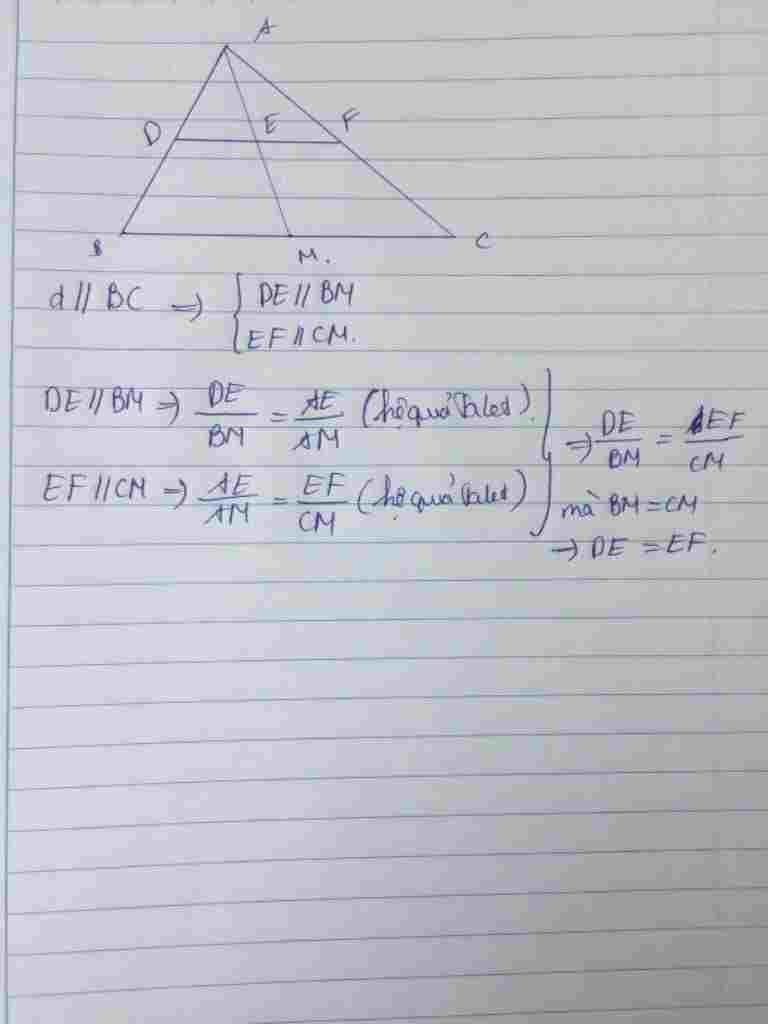 A
D E F
B M. C
d // BC => { DE // BM
EF // CM.
DE // BM => DE/BM = AE/AM (hệ quả Talet).
EF // CM => AE/AM = EF/CM (hệ quả Talet)
=> DE/BM = EF/CM
mà BM = CM
-> DE = EF.